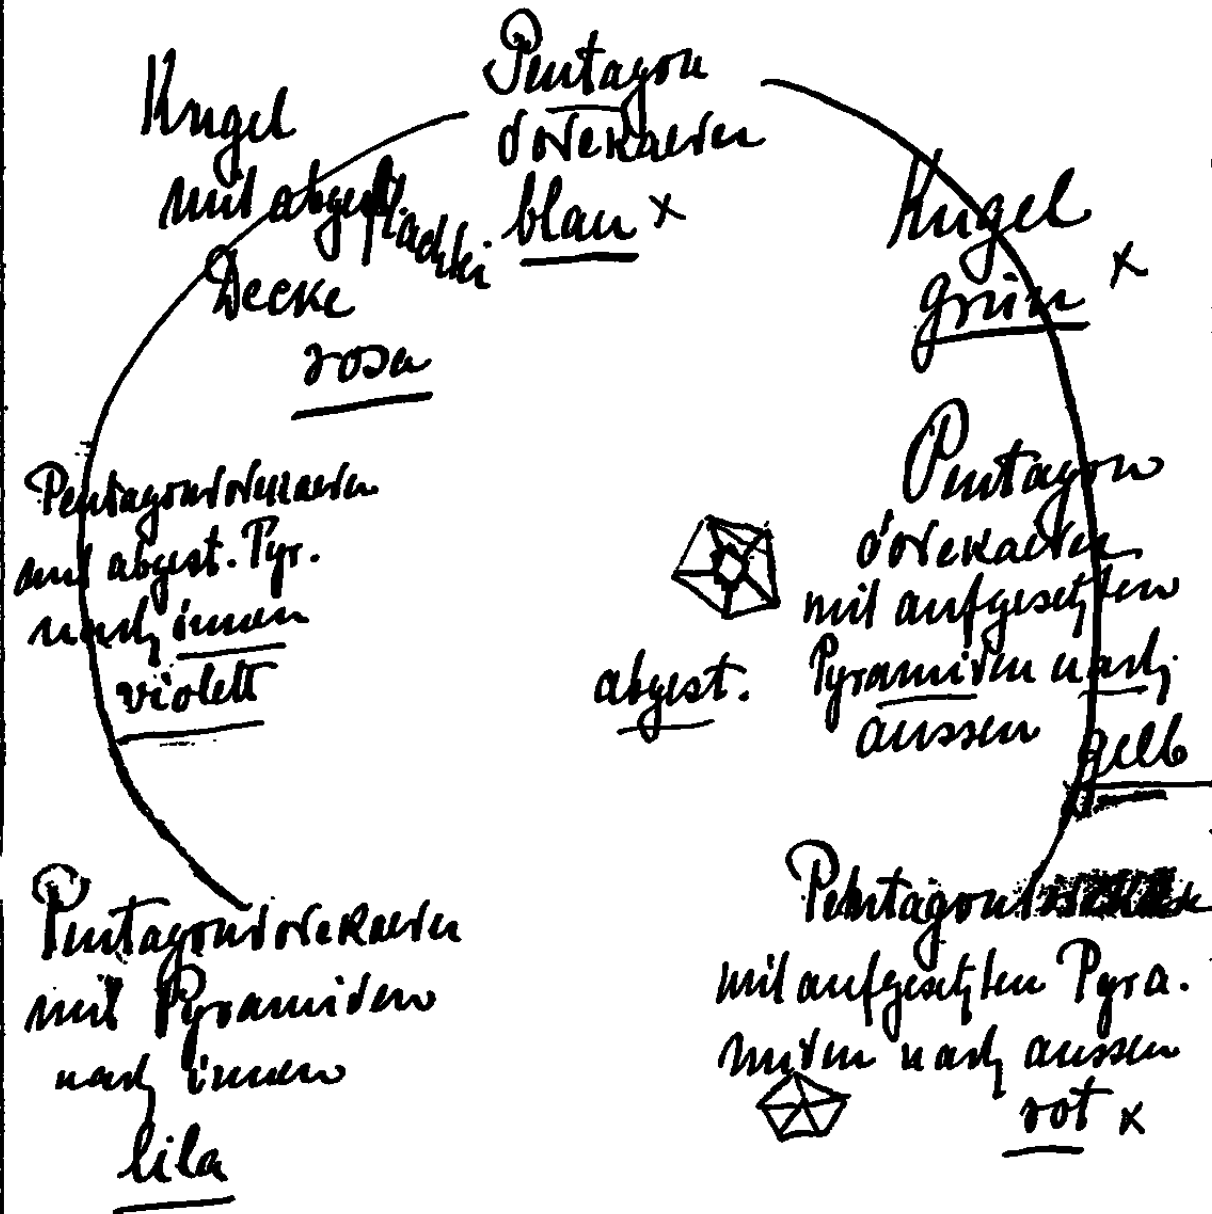 Pentagon
dodekaeder
blau x
Kugel
mit abgeflachter
Decke
rosa
Kugel
grün x
Pentagon
dodekaeder
mit aufgesetzten
Pyramiden nach
aussen
gelb
abgest.
Pentagondodekaeder
mit abgest. Pyr.
nach innen
violett
Pentagondodekaeder
mit Pyramiden
nach innen
lila
Pentagondodek
mit aufgesetzten Pyra.
miden nach aussen
rot x